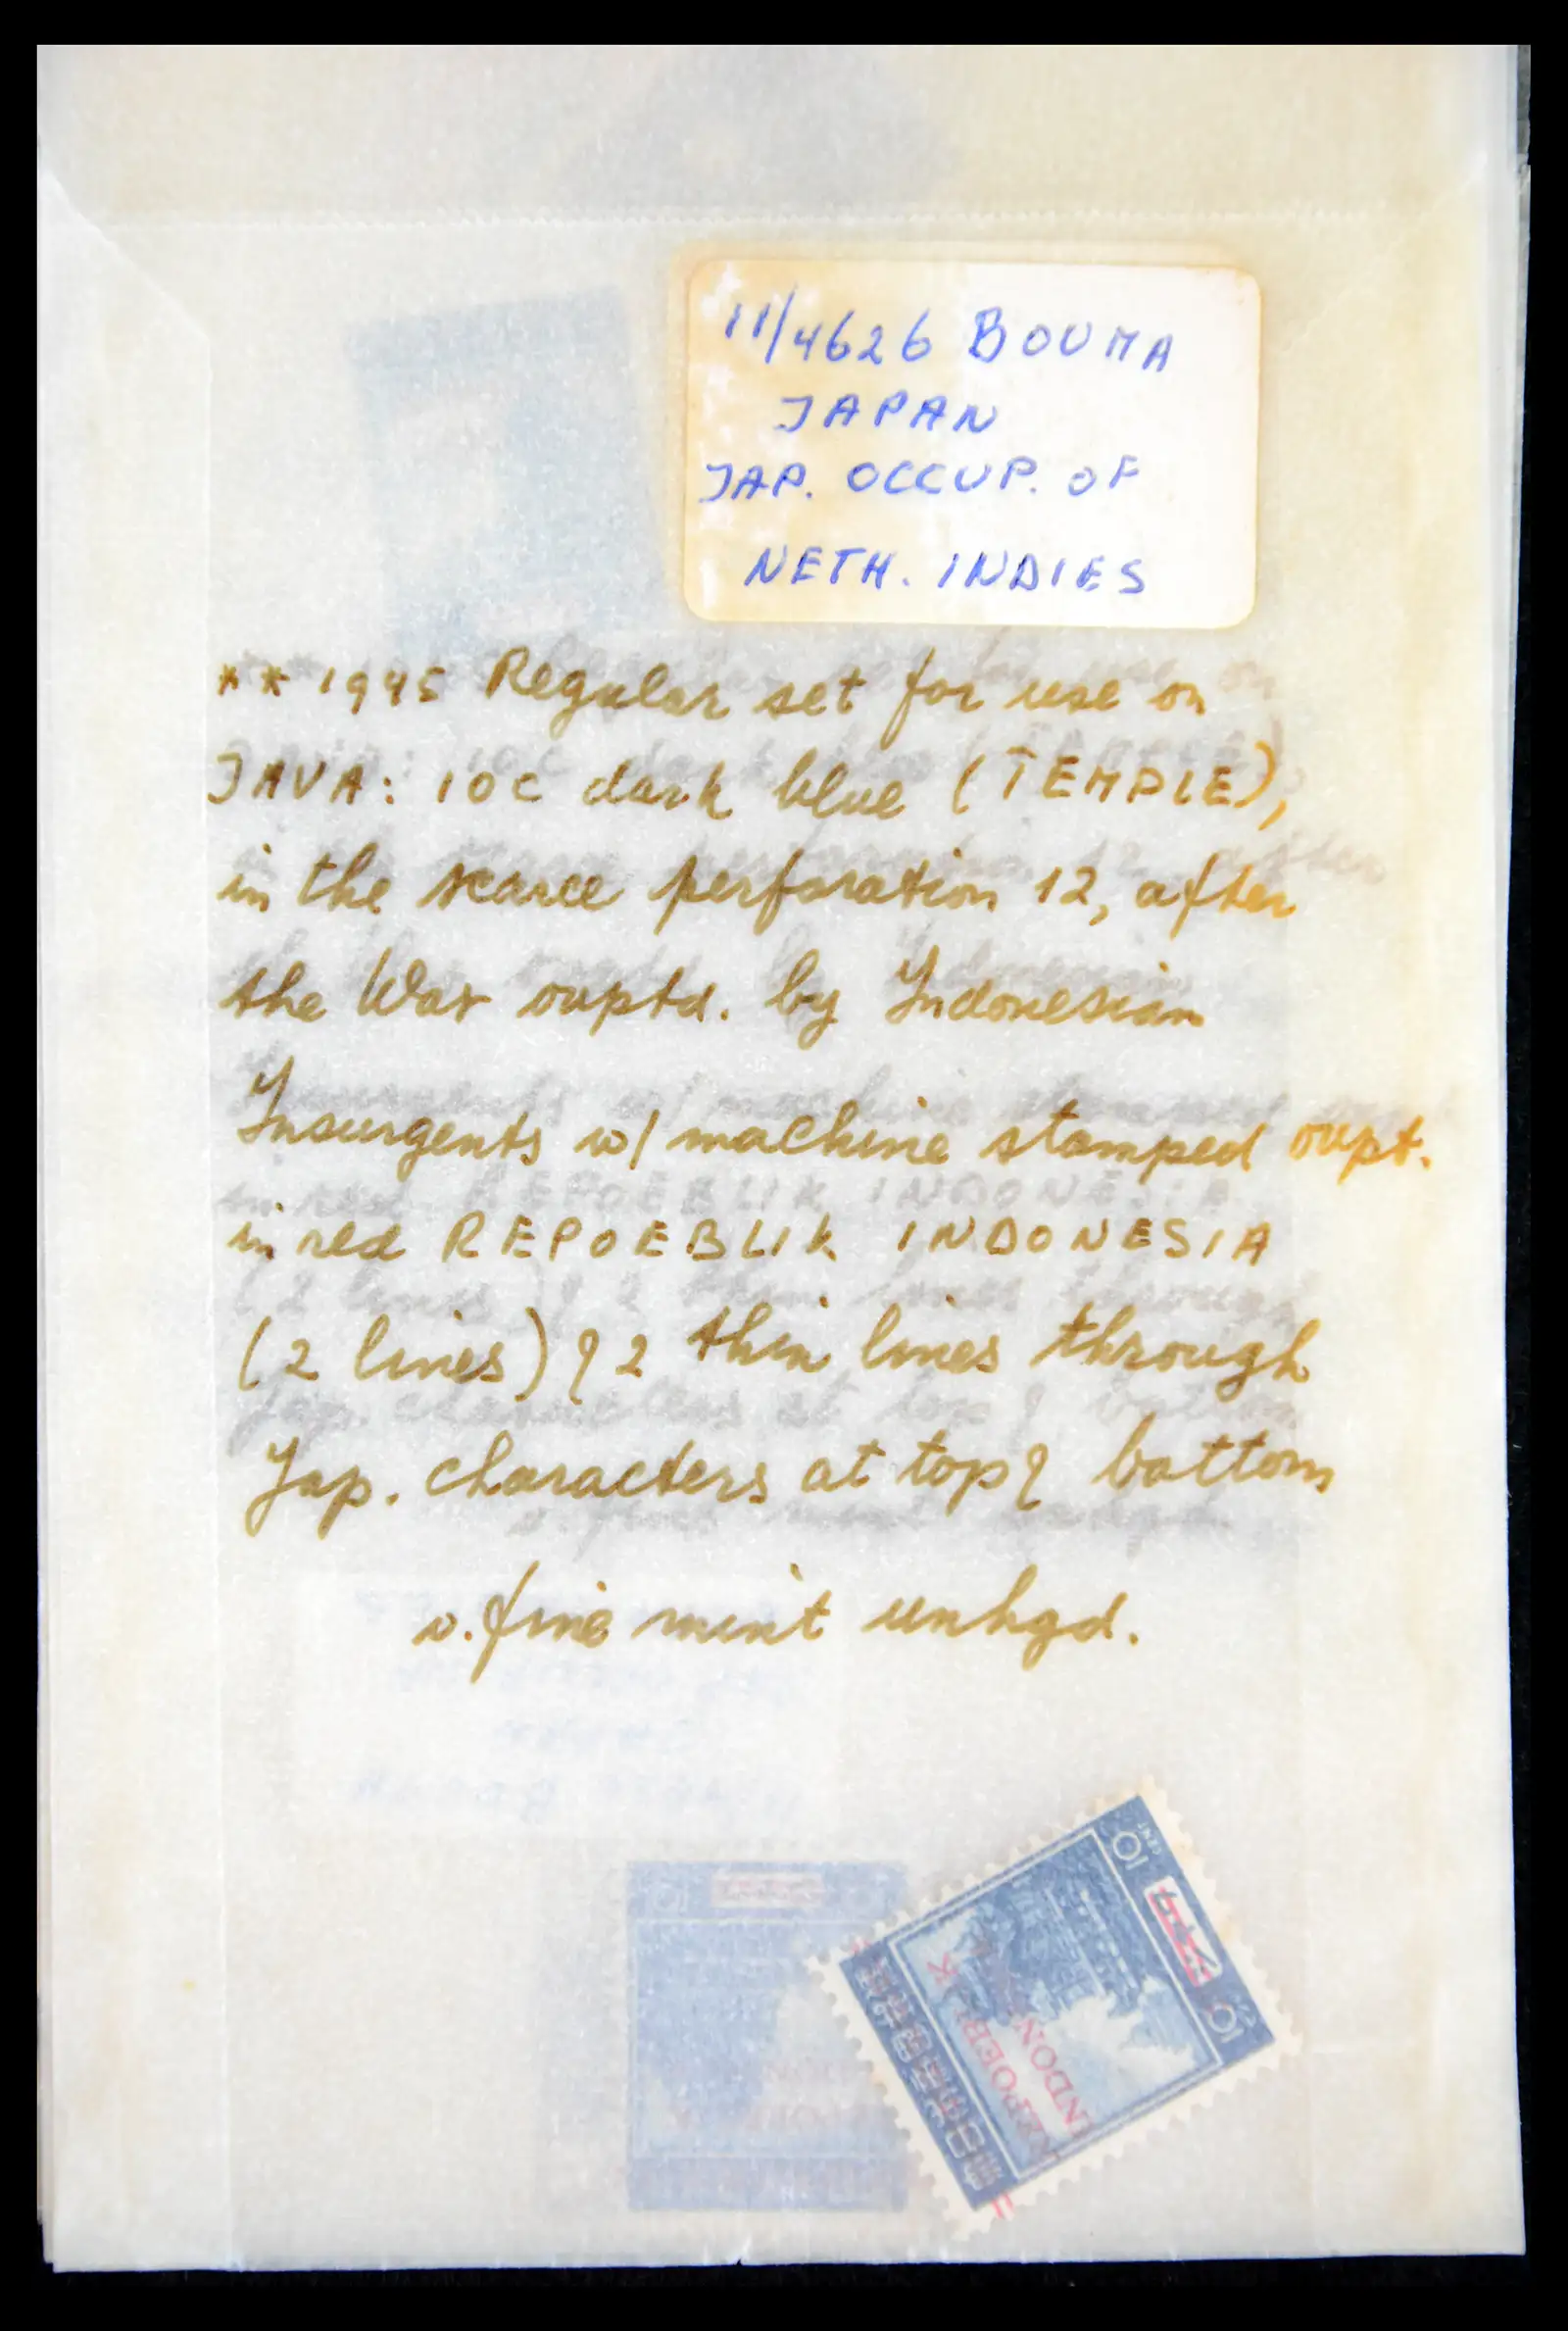 11/4626 BOUMA
JAPAN
JAP. OCCUP. OF
NETH. INDIES
** 1945 Regular set for use on
JAVA: 10c dark blue (TEMPLE),
in the scarce perforation 12, after
the War ovptd. by Indonesian
Insurgents w/ machine stamped ovpt.
in red REPOEBLIK INDONESIA
(2 lines) & 2 thin lines through
Jap. characters at top & bottom
v. fine mint unhgd.
10 CENT
10